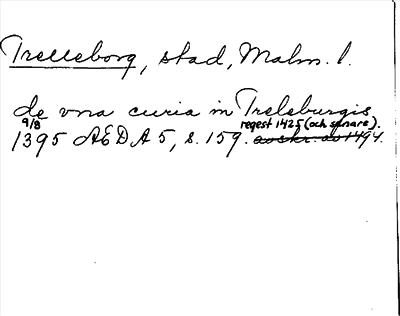 Trelleborg, stad, Malm. l.
de vna curia in Treleburgis
9/8 regest 1425 (och senare).
1395 ÆDA 5, s. 159. avskr. av 1494.